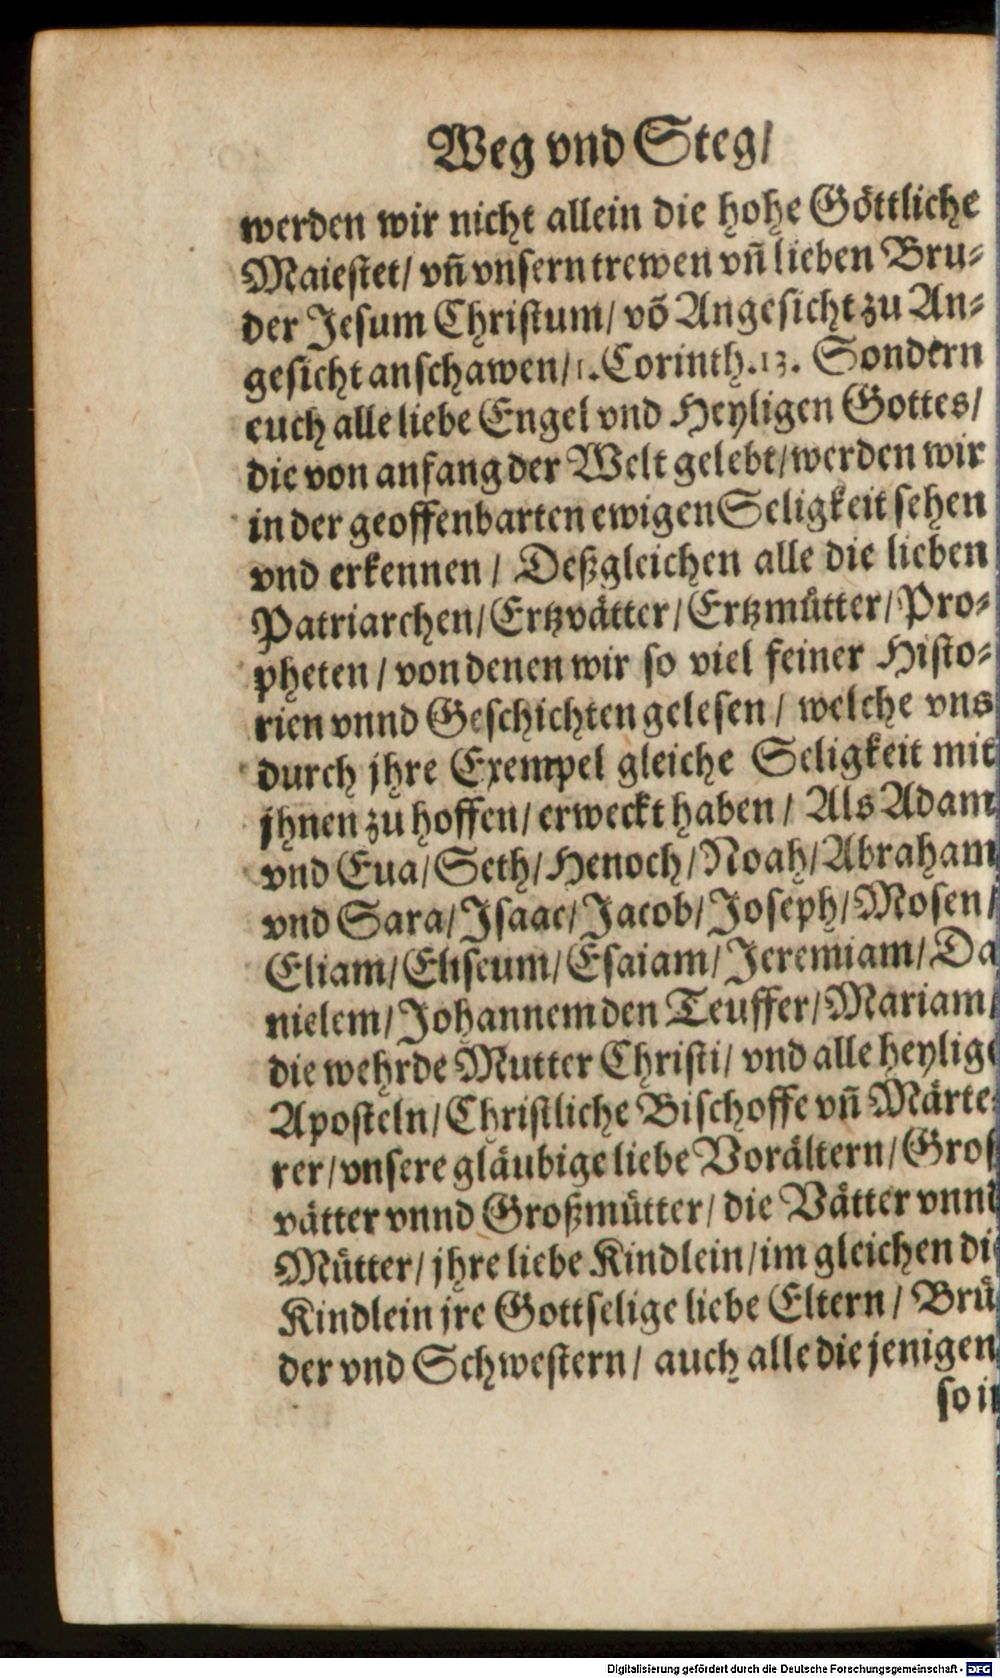 Weg vnd Steg/
werden wir nicht allein die hohe Göttliche
Maiestet/ vñ vnsern trewen vñ lieben Bru-
der Jesum Christum/ võ Angesicht zu An-
gesicht anschawen/ 1. Corinth. 13. Sondern
euch alle liebe Engel vnd Heyligen Gottes/
die von anfang der Welt gelebt/ werden wir
in der geoffenbarten ewigen Seligkeit sehen
vnd erkennen/ Deßgleichen alle die lieben
Patriarchen/ Ertzvätter/ Ertzmütter/ Pro-
pheten/ von denen wir so viel feiner Histo-
rien vnnd Geschichten gelesen/ welche vns
durch jhre Exempel gleiche Seligkeit mit
jhnen zu hoffen/ erweckt haben/ Als Adam
vnd Eua/ Seth/ Henoch/ Noah/ Abraham
vnd Sara/ Isaac/ Jacob/ Joseph/ Mosen/
Eliam/ Eliseum/ Esaiam/ Jeremiam/ Da
nielem/ Johannem den Teuffer/ Mariam/
die wehrde Mutter Christi/ vnd alle heylige
Aposteln/ Christliche Bischoffe vñ Märte-
rer/ vnsere gläubige liebe Vorältern/ Gros
vätter vnnd Großmütter/ die Vätter vnnd
Mütter/ jhre liebe Kindlein/ im gleichen die
Kindlein jre Gottselige liebe Eltern/ Brü
der vnd Schwestern/ auch alle die jenigen
so in
Digitalisierung gefördert durch die Deutsche Forschungsgemeinschaft - DFG